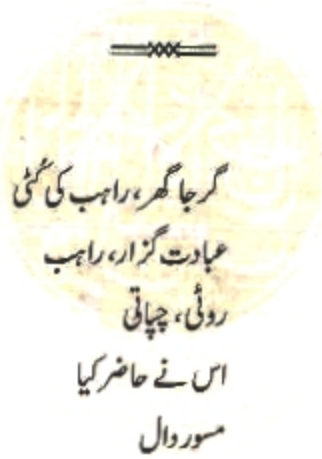 گرجا گھر، راہب کی کُٹی
عبادت گزار، راہب
روٹی، چپاتی
اس نے حاضر کیا
مسور دال